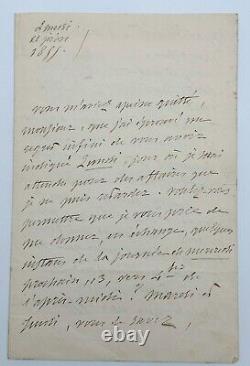 Lundi
1855.
vous m'avez à peine quitté,
monsieur, que j'ai éprouvé un
regret infini de vous avoir
indiqué Lundi, jour où je suis
attendu pour des affaires que
je ne puis retarder. voulez-vous
permettre que je vous prie de
me donner, en échange, quelques
instans de la journée de mercredi
prochain, 13, vers 4 hres de
l'après-midi? Mardi et
Jeudi, vous le savez,
worthpicture.com